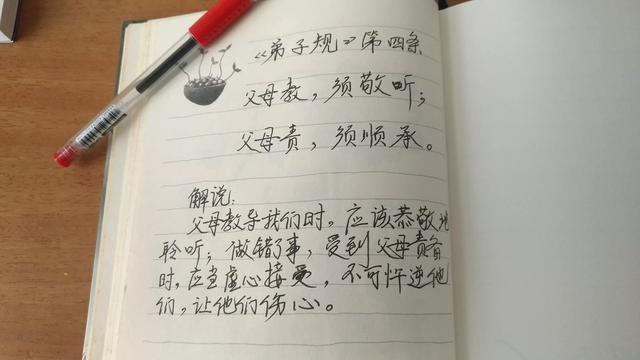 《弟子规》第四条
父母教，须敬听；
父母责，须顺承。
解说：
父母教导我们时，应该恭敬地
聆听；做错了事，受到父母责备
时，应当虚心接受，不可忤逆他
们，让他们伤心。